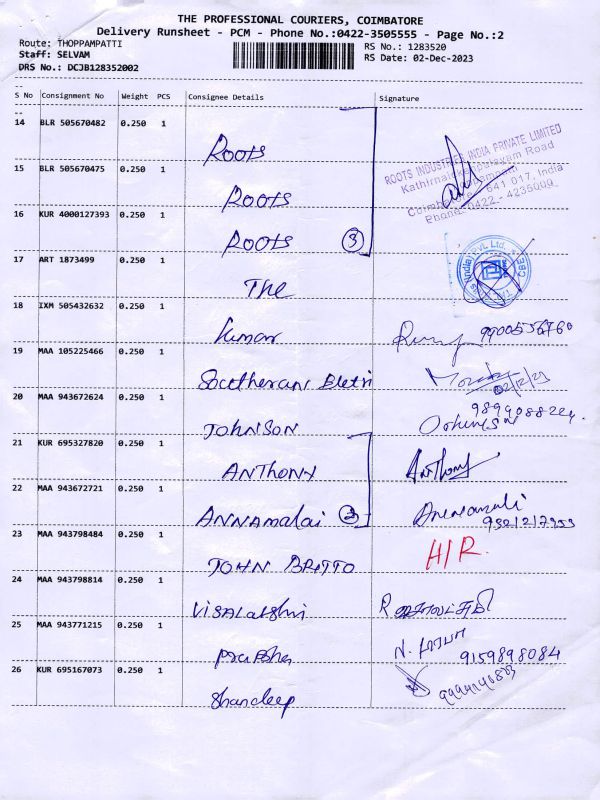 THE PROFESSIONAL COURIERS, COIMBATORE
Delivery Runsheet - PCM - Phone No.:0422-3505555 - Page No.:2
Route: THOPPAMPATTI
RS No.: 1283520
Staff: SELVAM
RS Date: 02-Dec-2023
DRS No.: DCJB128352002
S No Consignment No Weight PCS Consignee Details Signature
14 BLR 505670482 0.250 1
Roots
ROOTS INDUSTRIES INDIA PRIVATE LIMITED
15 BLR 505670475 0.250 1
Roots
641 017, India
Phone: 0422 - 4235009
16 KUR 4000127393 0.250 1
Roots 3
17 ART 1873499 0.250 1
The
(India) Pvt. Ltd.
CBE
18 IXM 505432632 0.250 1
Kumar
19 MAA 105225466 0.250 1
02/12/23
20 MAA 943672624 0.250 1
JOHNSON
21 KUR 695327820 0.250 1
ANTHONY Anthony
22 MAA 943672721 0.250 1
ANNAMALAI 2
23 MAA 943798484 0.250 1
JOHN BRITTO H/R.
24 MAA 943798814 0.250 1
Visalakshi
25 MAA 943771215 0.250 1
9159898084
26 KUR 695167073 0.250 1
Shandeep